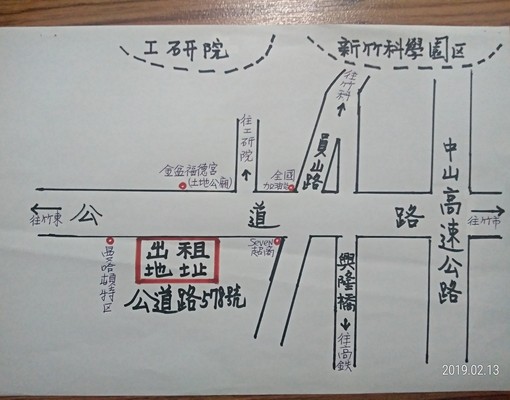 工研院
新竹科學園区
往竹科
往工研院
員山路
中山高速公路
金盆福德宮
(土地公廟)
全國
加油站
往竹東
公道路
往竹市
曼哈頓特区
出租
地址
Seven
超商
公道路578號
興隆橋
往高鉄
2019.02.13